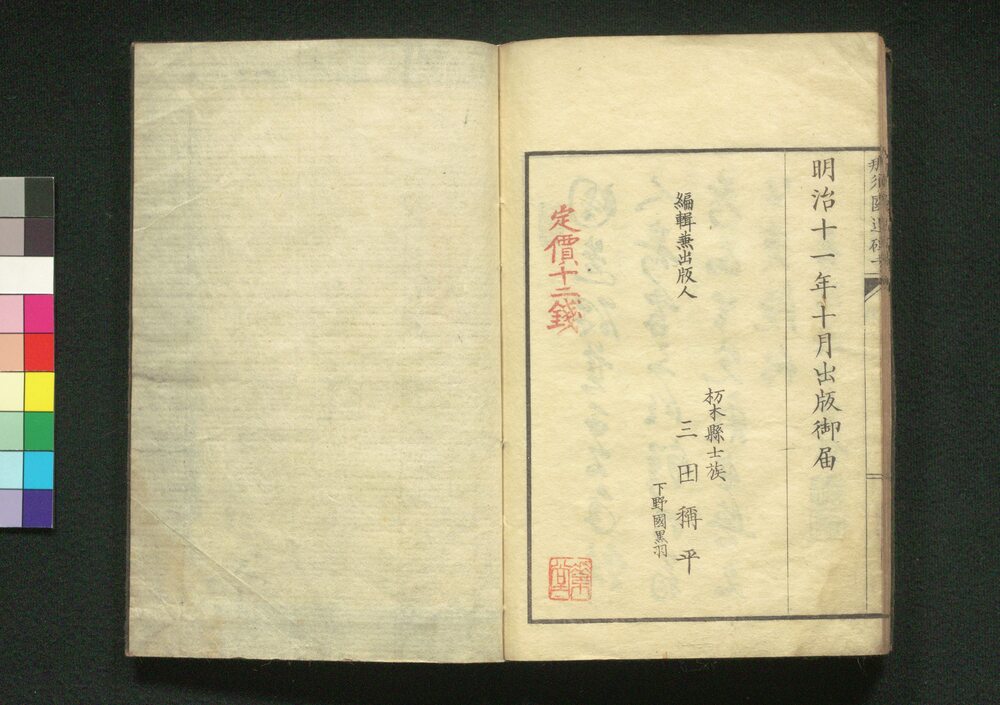 明治十一年十月出版御届
編輯兼出版人
栃木縣士族
三田稱平
下野國黒羽
定價十二錢